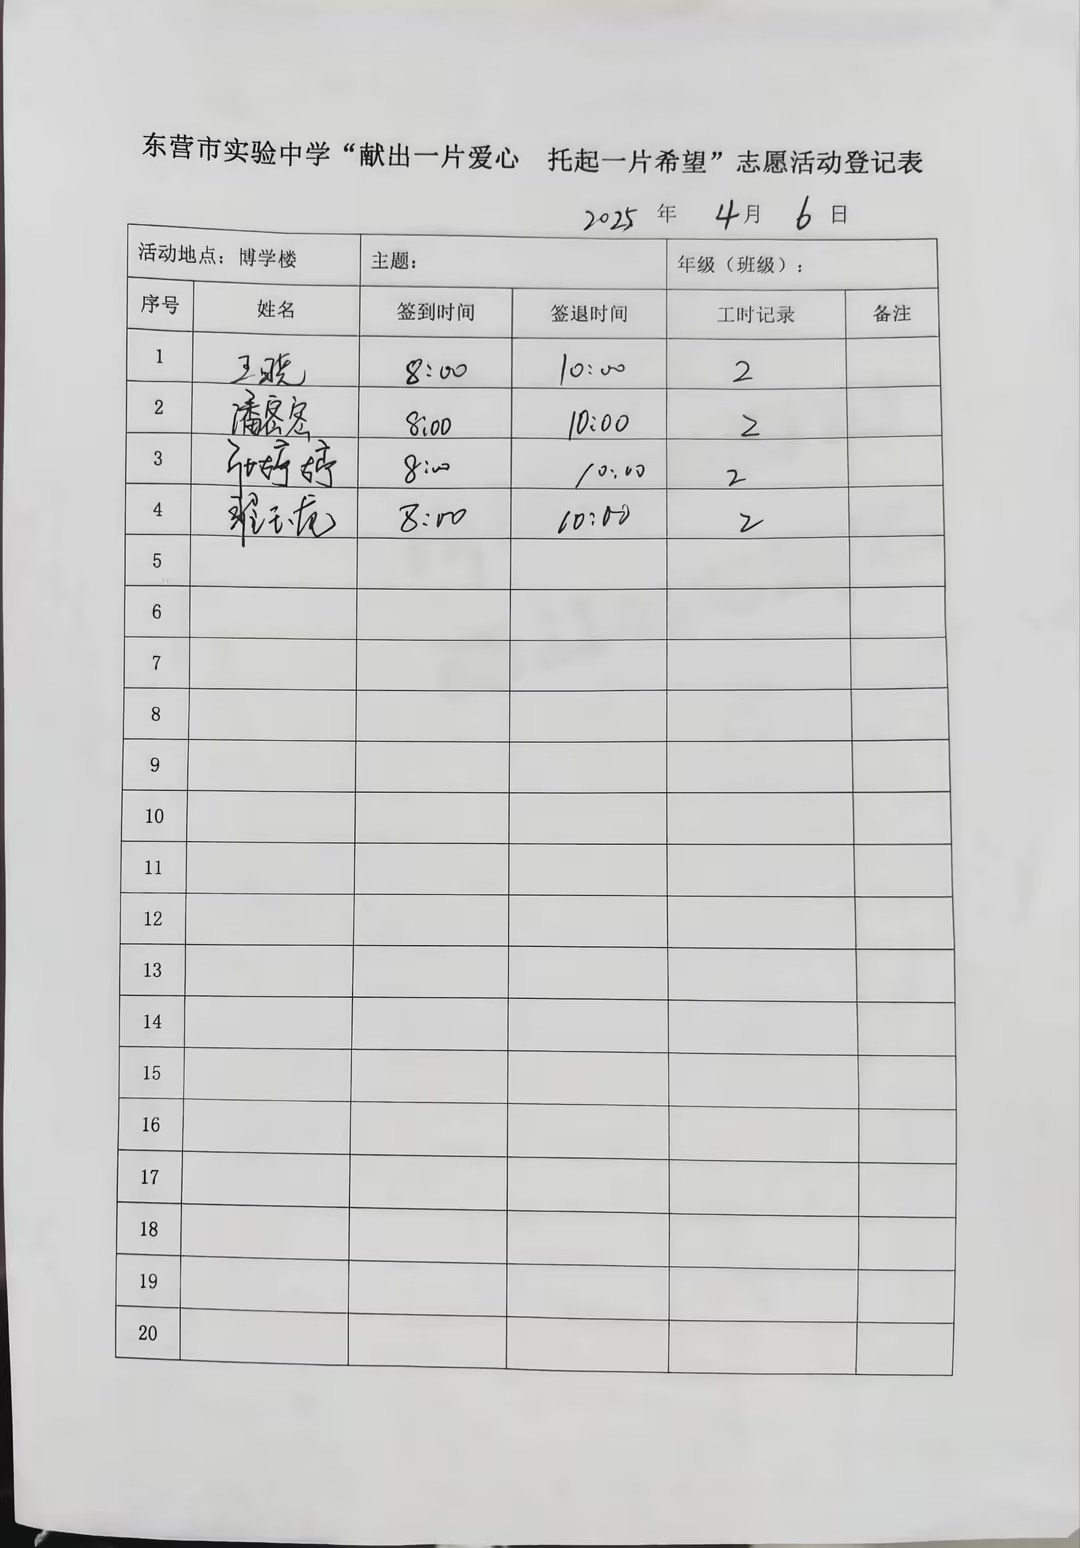 东营市实验中学“献出一片爱心 托起一片希望”志愿活动登记表
2025 年 4月 6日
活动地点：博学楼 主题： 年级（班级）：
序号 姓名 签到时间 签退时间 工时记录 备注
1 王晓 8:00 10:00 2
2 潘密密 8:00 10:00 2
3 婷婷 8:00 10:00 2
4 8:00 10:00 2
5
6
7
8
9
10
11
12
13
14
15
16
17
18
19
20